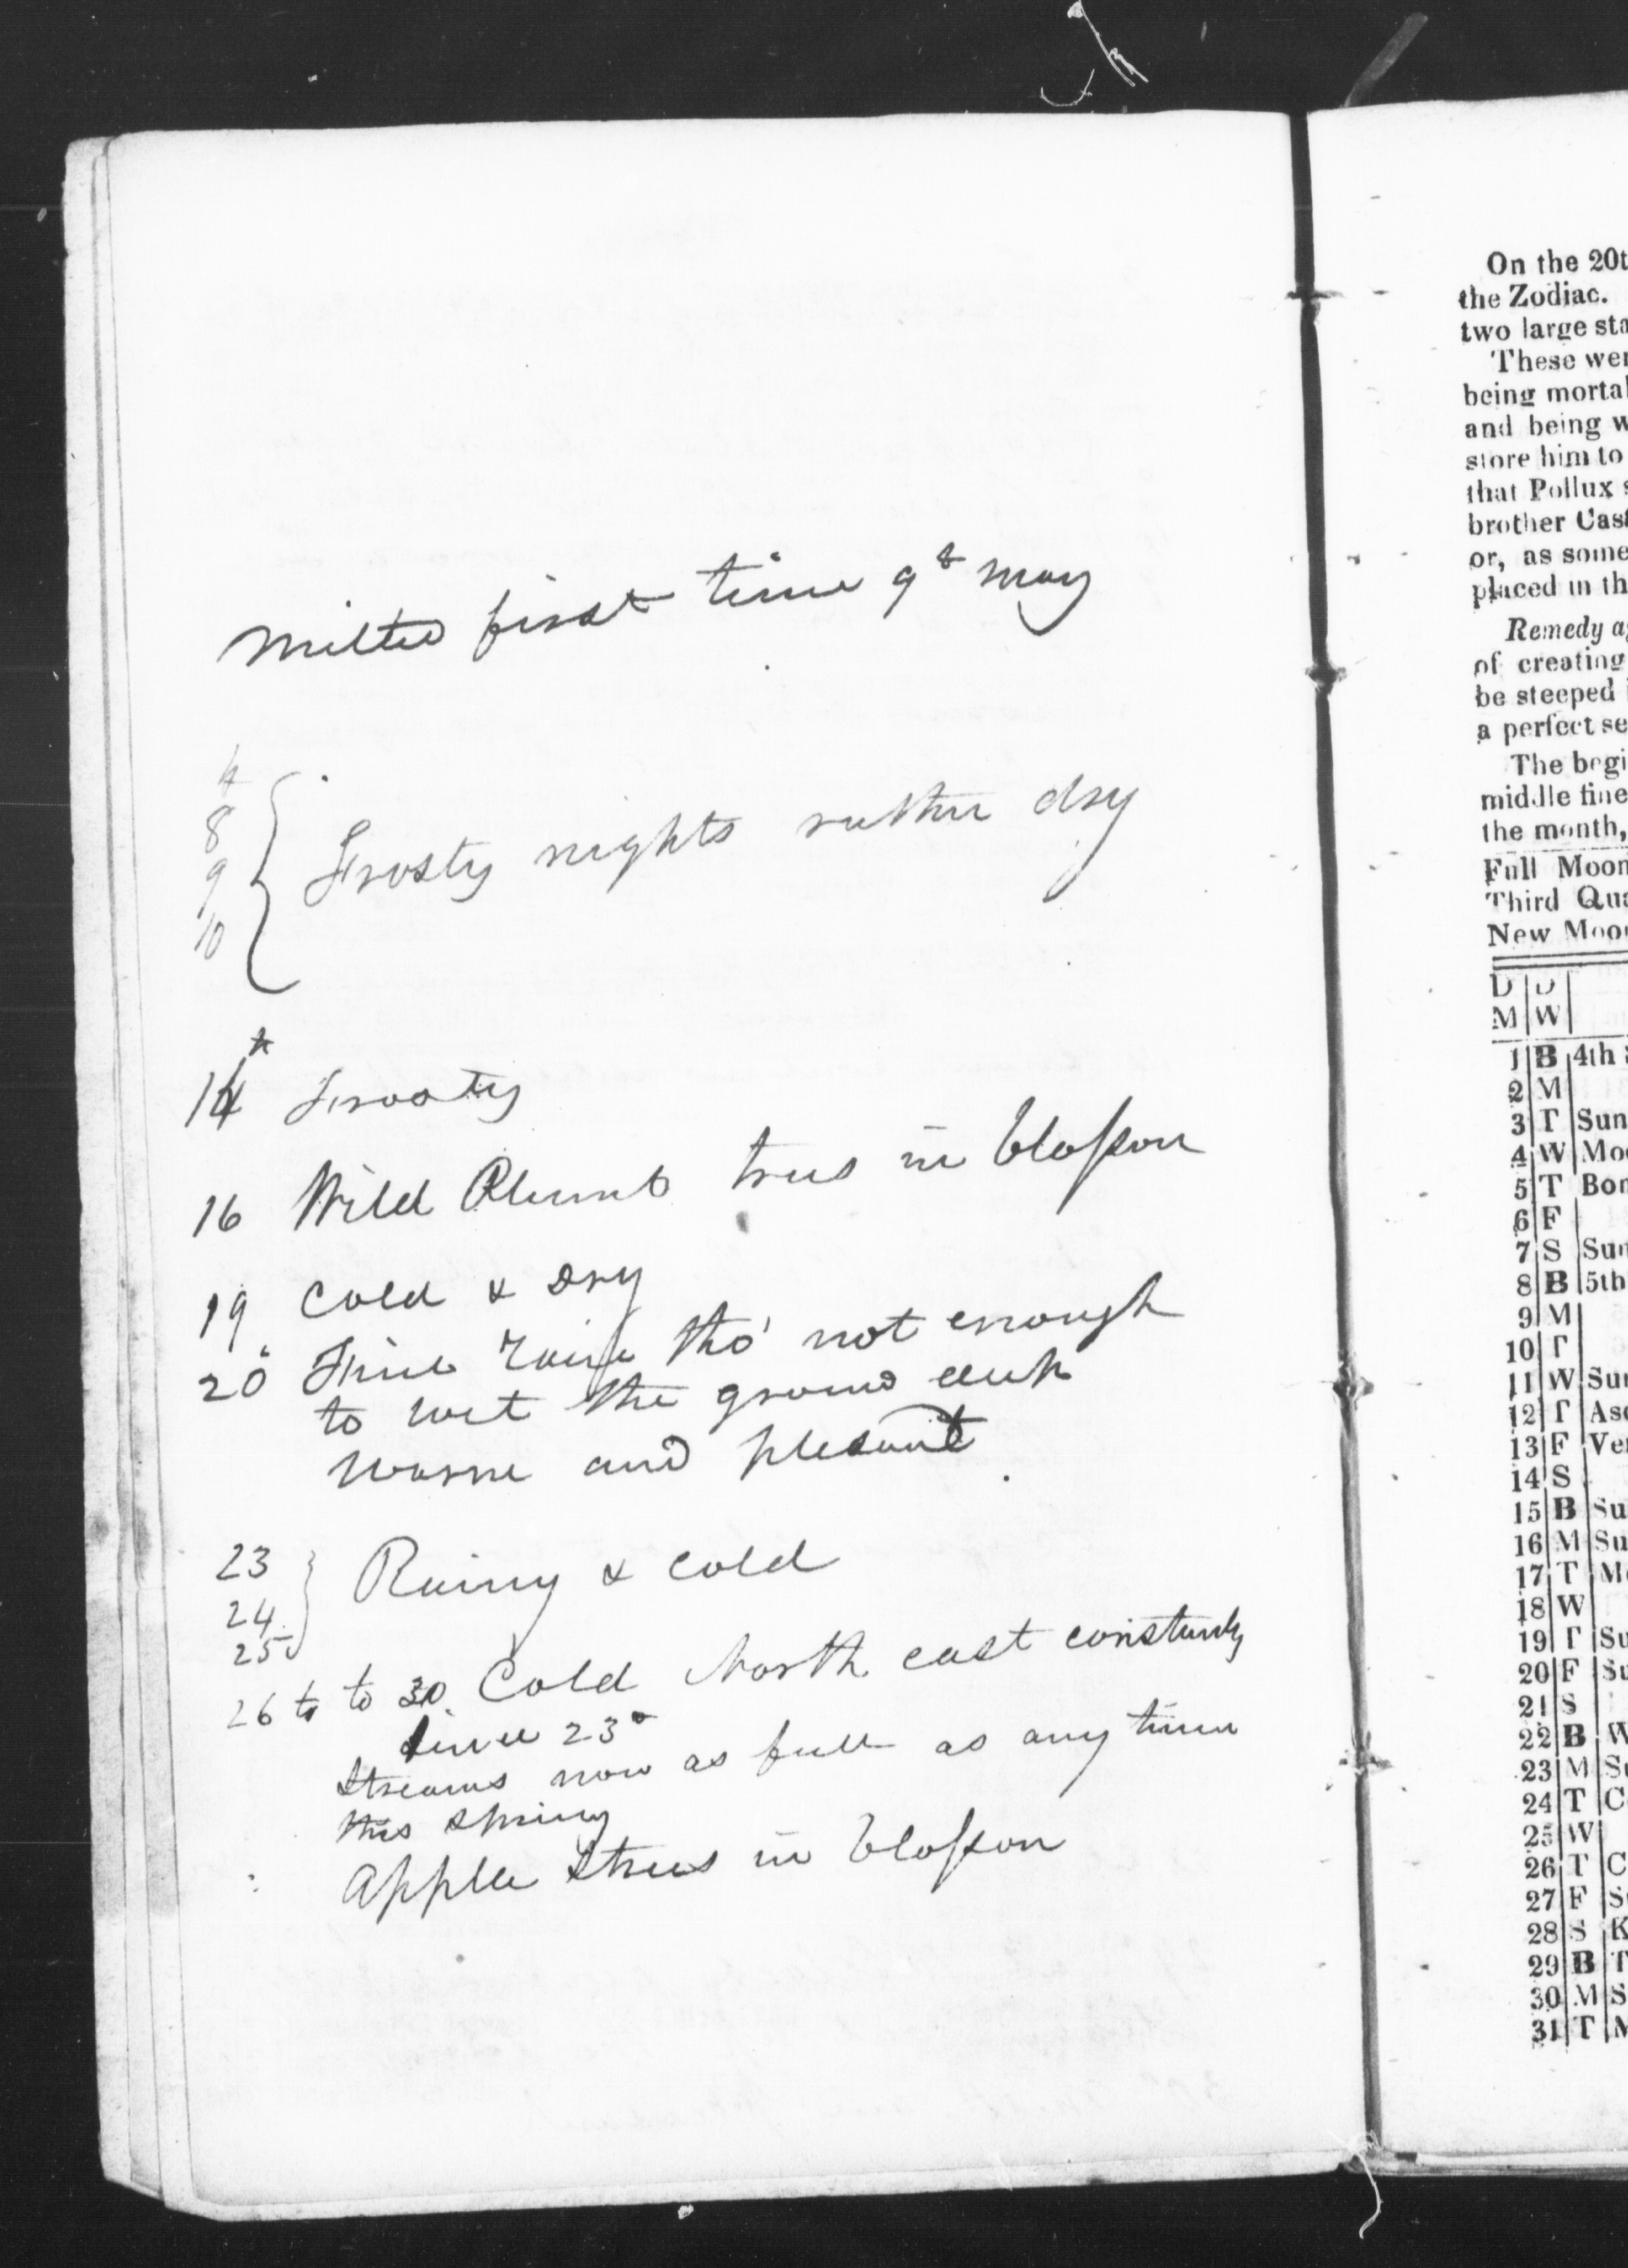 first time 9th May
8
9
10
Frosty nights rather dry
14th Frosty
16 Wild Plumb trees in blossom
19 Cold & Dry
20 Fine rain tho' not enough
to wet the ground deep
warm and plesant
23
24
25
Rainy & Cold
26th to 30 Cold North east constantly
since 23d
Streams now as full as any time
this Spring
Apple trees in blossom
On the 20t
the Zodiac.
two large sta
These wer
being mortal
and being w
store him to
that Pollux s
brother Cast
or, as some
placed in th
Remedy ag
of creating
be steeped i
a perfect se
The begi
middle fine
the month,
Full Moon
Third Qua
New Moon
D D
M W
1 B 4th S
2 M
3 T Sun
4 W Moo
5 T Bon
6 F
7 S Sun
8 B 5th
9 M
10 T
11 W Sun
12 T Asc
13 F Ven
14 S
15 B Su
16 M Su
17 T Mo
18 W
19 T Su
20 F Su
21 S
22 B W
23 M Su
24 T C
25 W
26 T C
27 F S
28 S K
29 B T
30 M S
31 T M